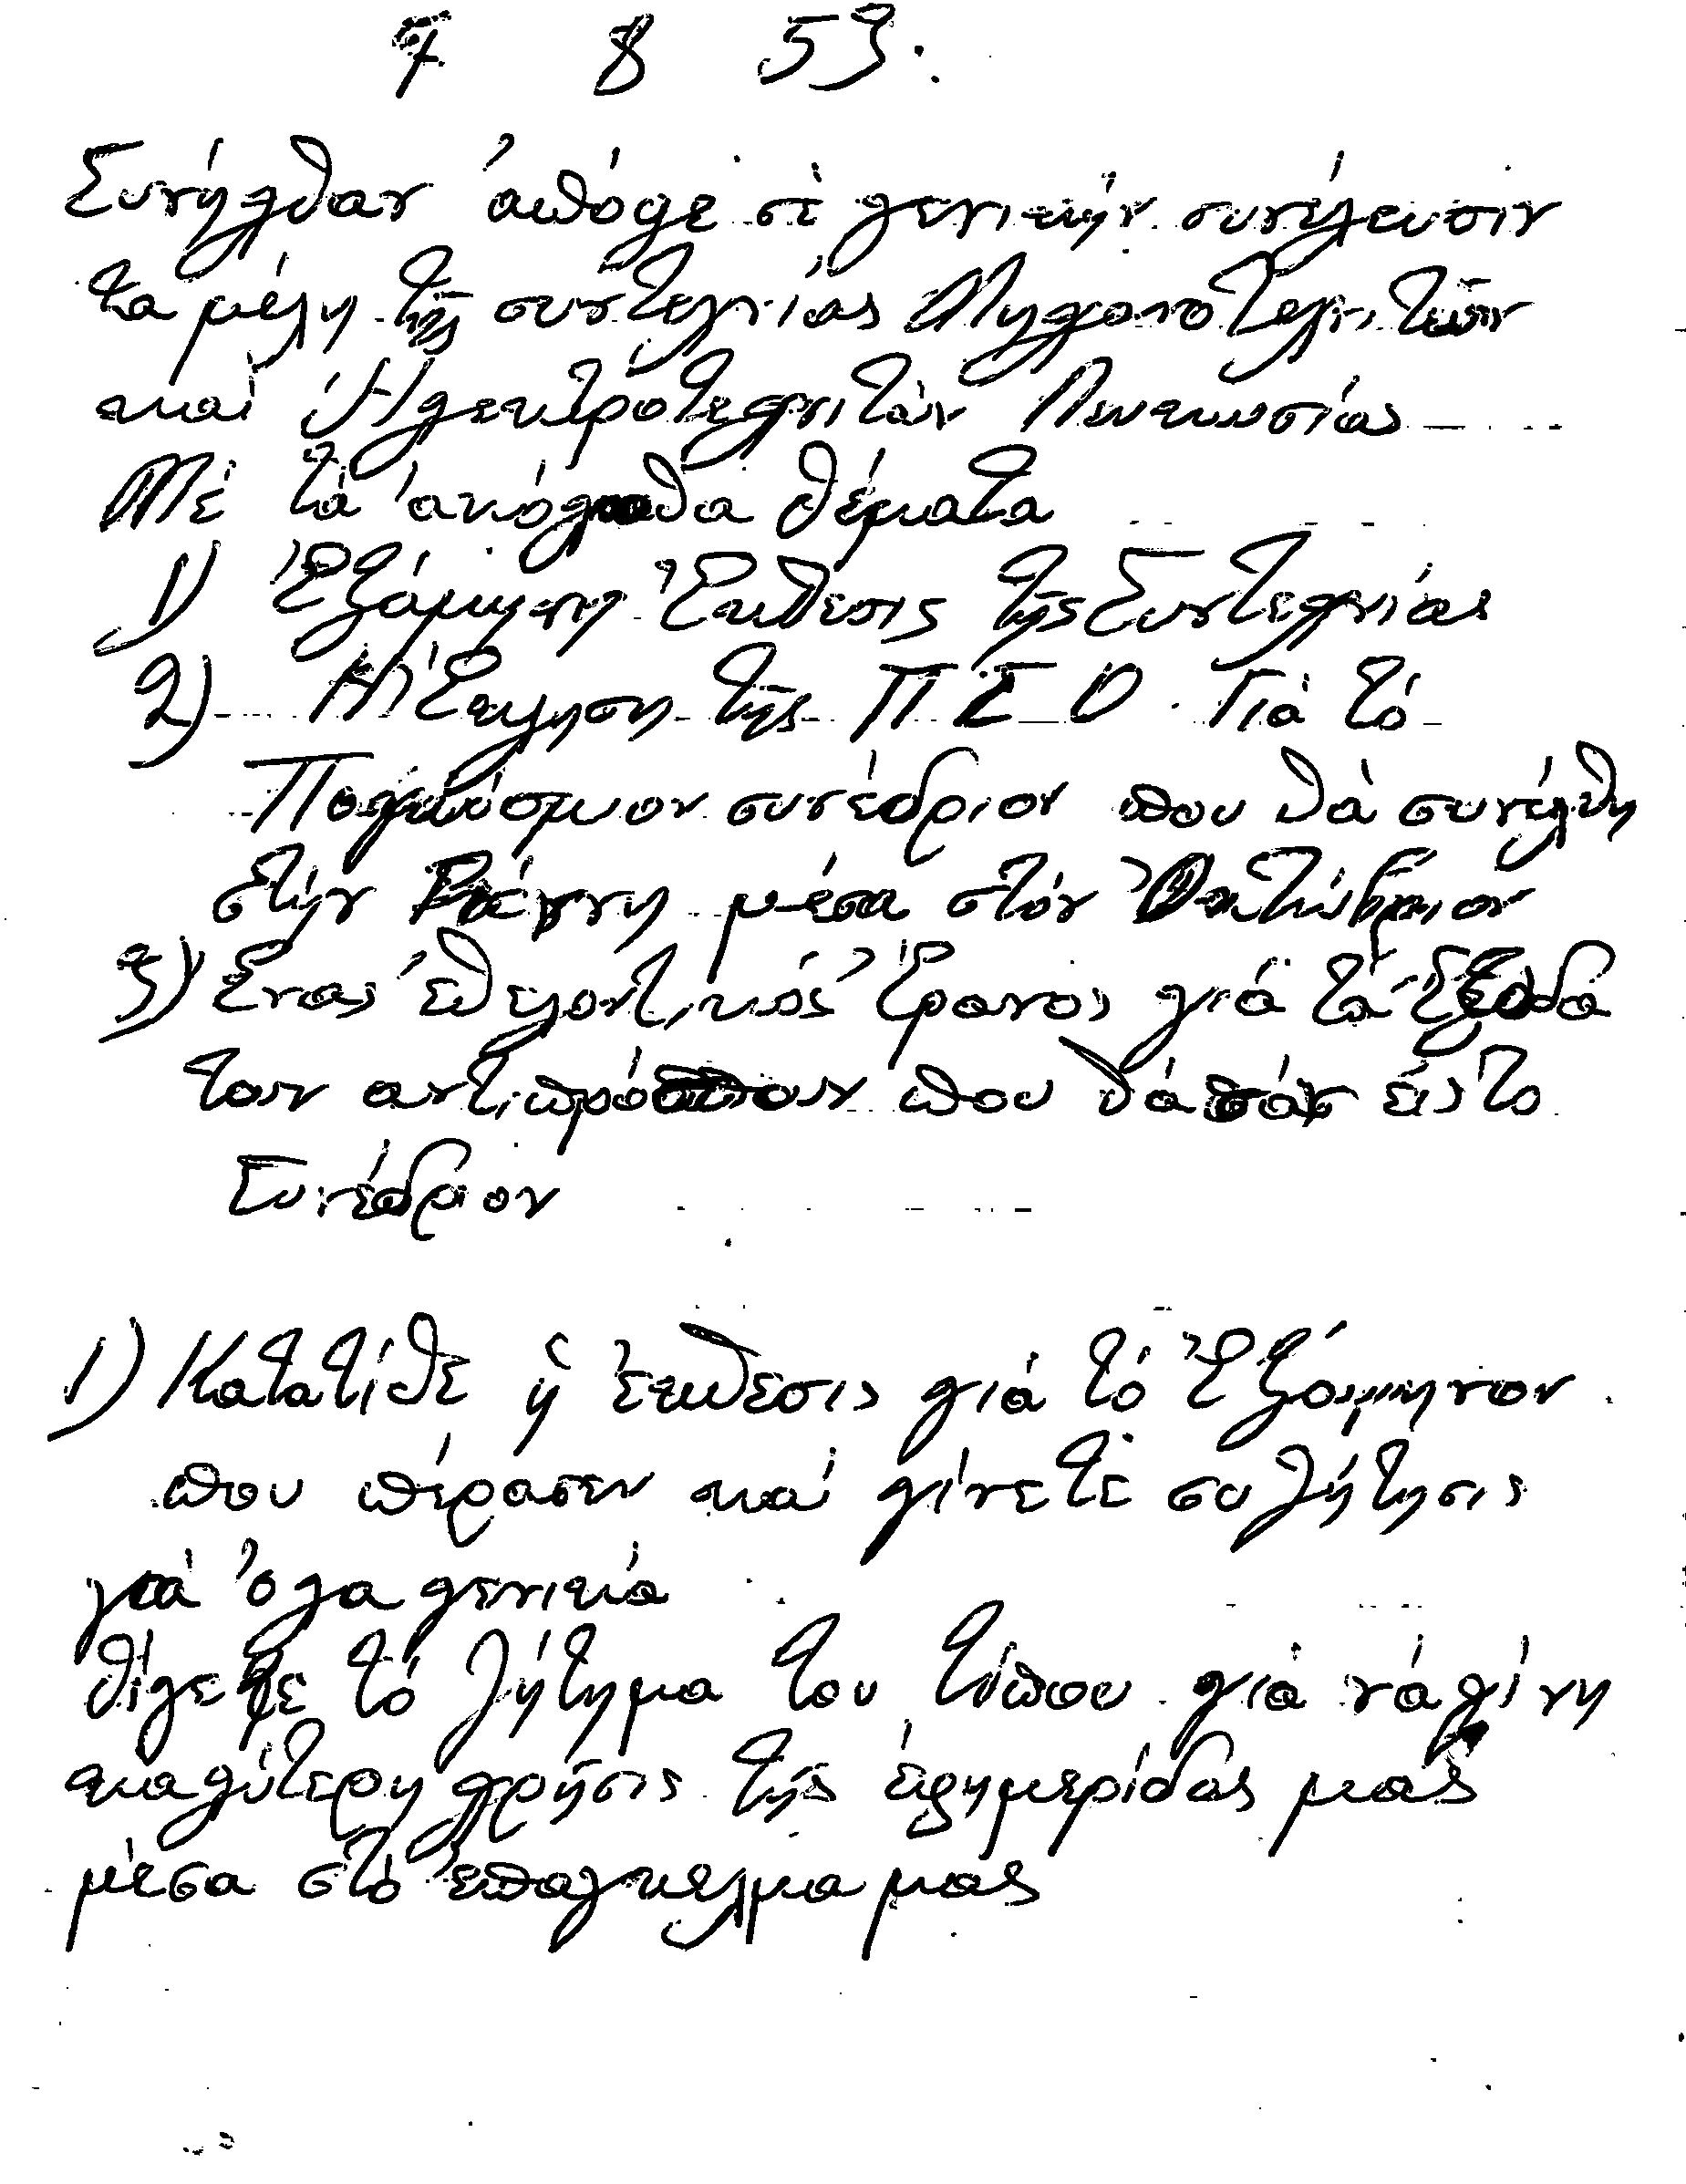 7 8 53.
Συνήλθαν ἀπόψε σὲ γενικήν συνέλευσιν
τα μέλη τῆς συντεχνίας Μηχανοτεχνιτῶν
και Ἠλεκτροτεχνιτῶν Λευκωσίας
Μὲ τὰ ἀκόλουθα θέματα
1) Ἑξάμηνη Ἔκθεσις τῆς Συντεχνίας
2) Ἡ Ἔκκληση τῆς Π Σ Ο Γιὰ τὸ
Παγκόσμιον συνέδριον που θὰ συνέλθη
στήν Βιέννη μέσα στόν Ὀκτώβριον
3) Ἕνας ἐθελοντικός Ἔρανος γιά τά Ἔξοδα
των αντιπρόσωπων που θά πάν εἰς το
Συνέδριον
1) Κατατίθε ἡ ἔκθεσις γιά τό Ἑξάμηνον
που πέρασεν και γίνετε συζήτησις
γιά ὅλα γενικά
θίγετε τό ζήτημα του τύπου γιά νά γίνη
καλύτερη χρῆσις τῆς ἐφημερίδας μας
μέσα στὸ ἐπάγκελμα μας